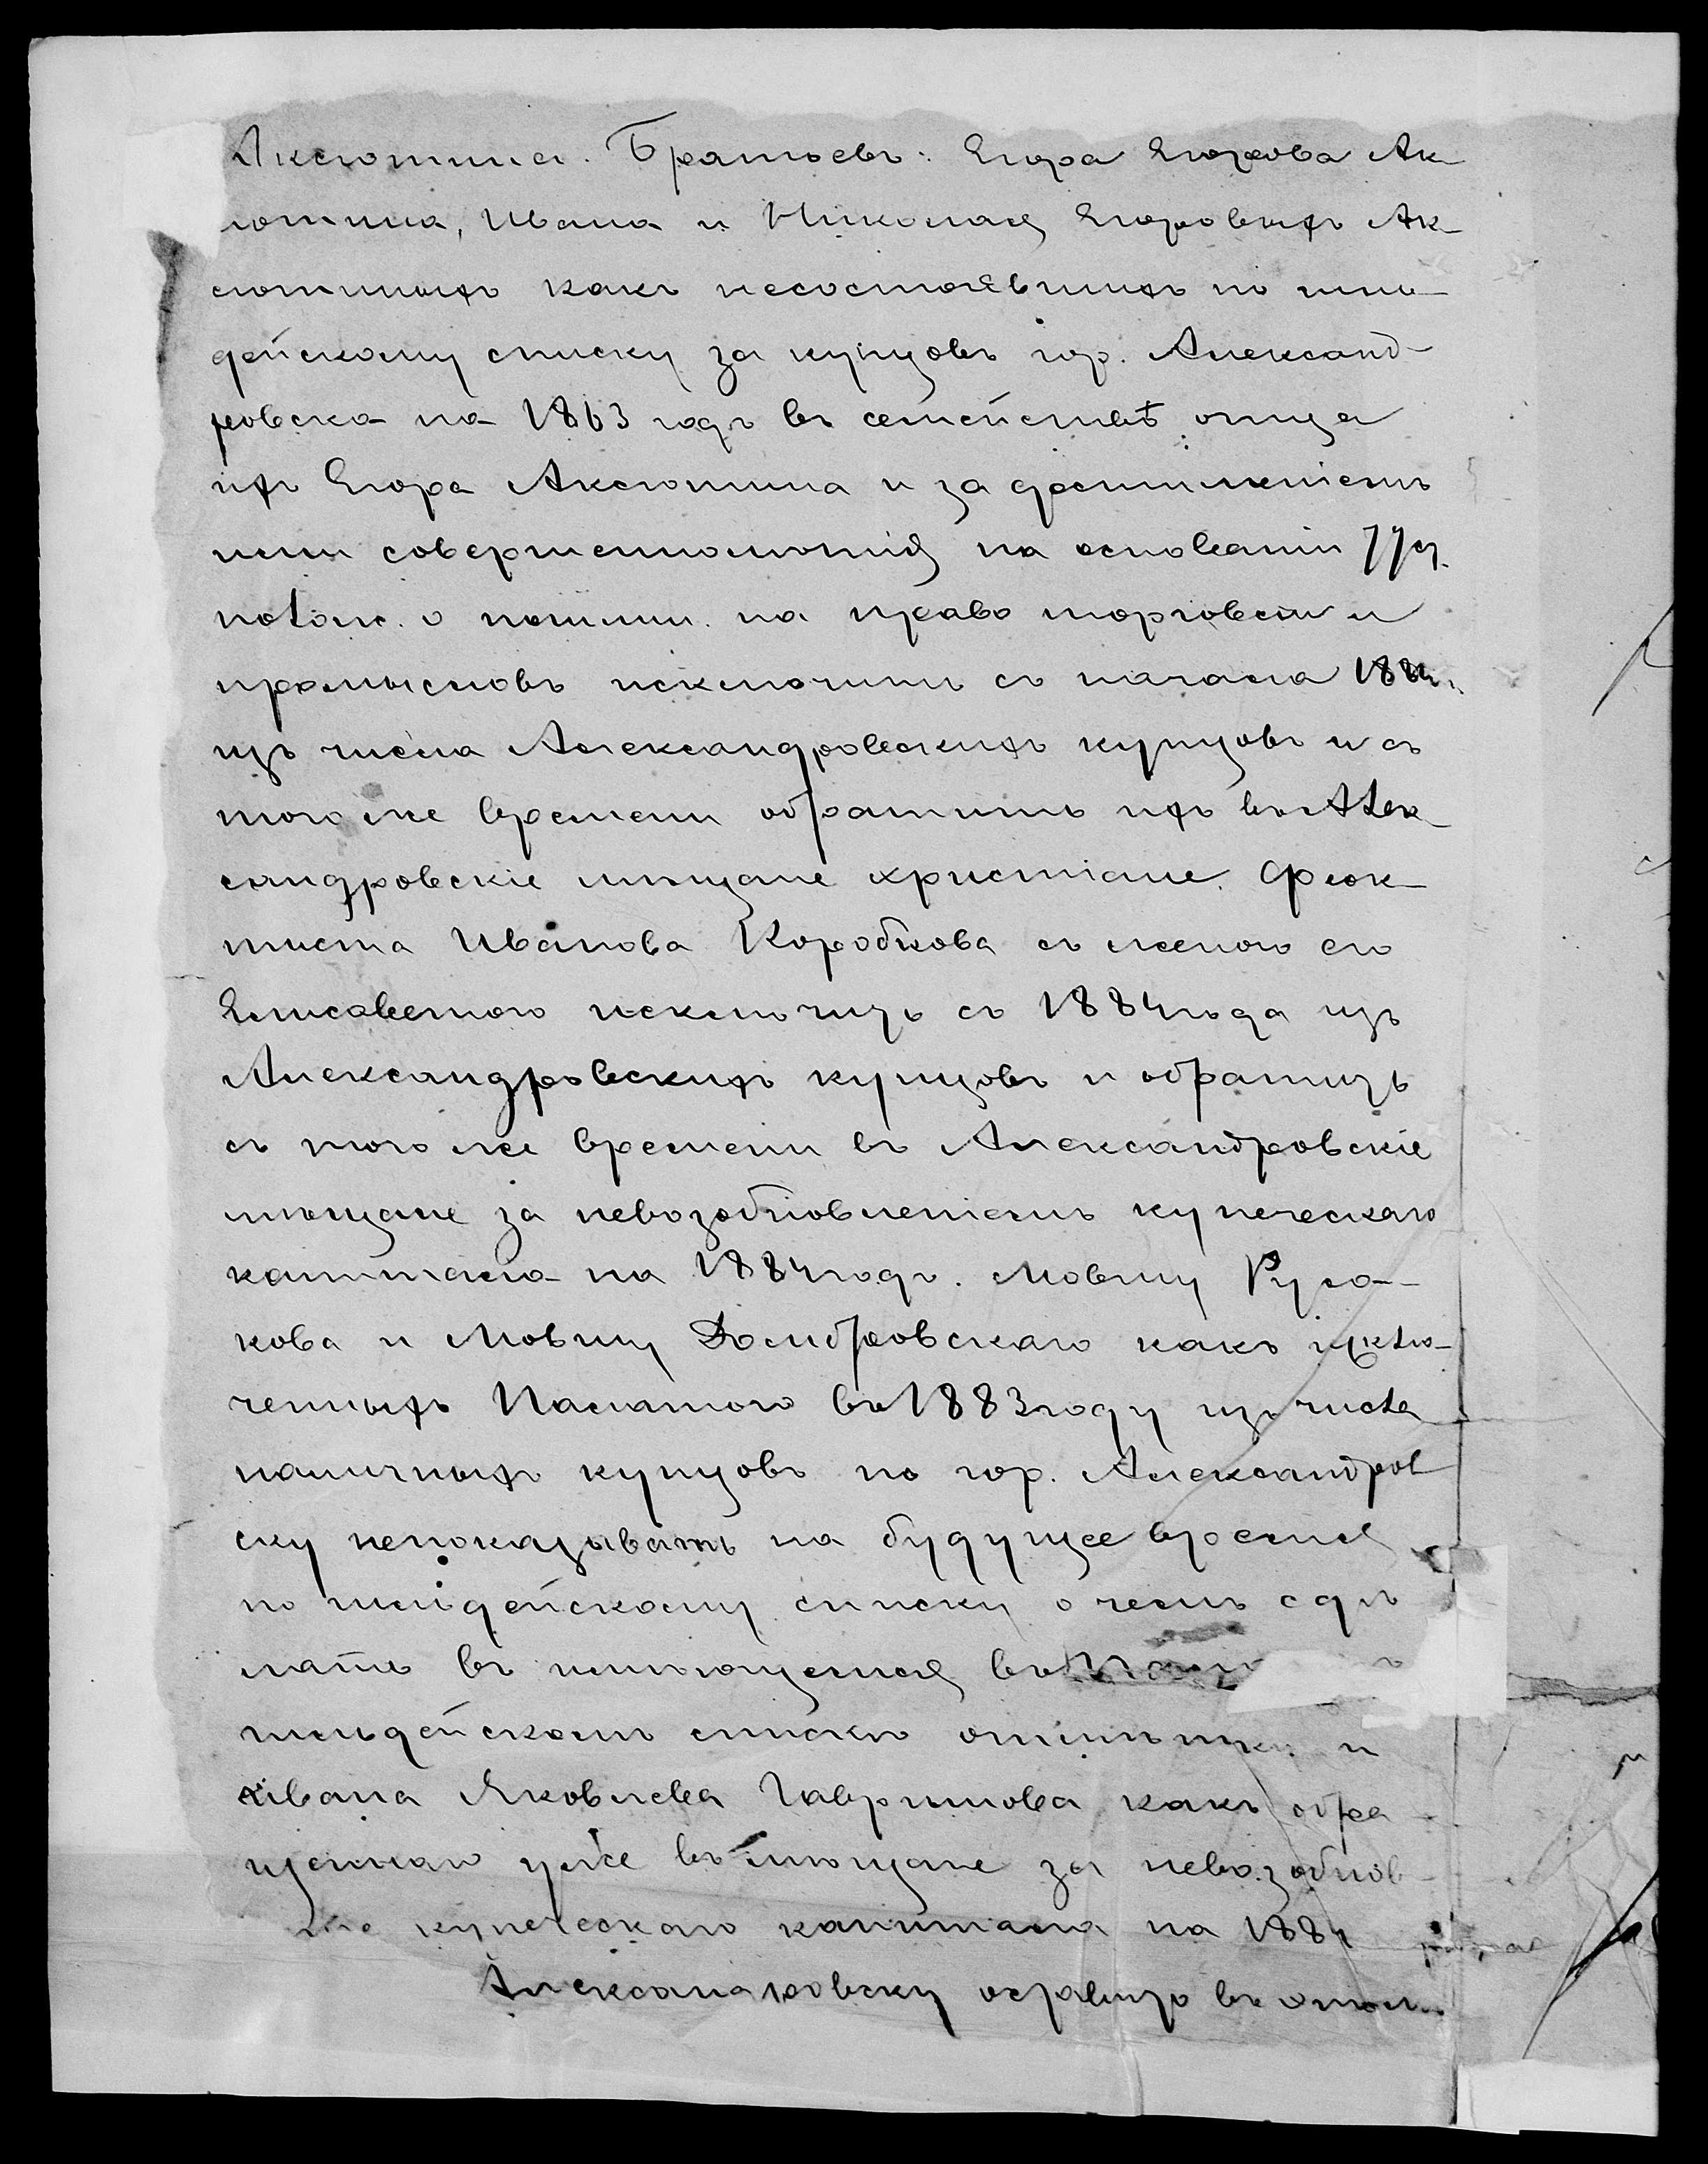 Аксютина. Братьевъ: Егора Егорова Ак-
сютина, Ивана и Николая Егоровыхъ Ак-
сютиныхъ какъ несостоявшихъ по гиль-
дейскому списку за купцовъ гор. Александ-
ровска на 1863 годъ въ семействѣ отца
ихъ Егора Аксютина и за достиженіемъ
ними совершеннолѣтія на основаніи 77 ст.
полож. о пошлин. на право торговли и
промысловъ исключить съ начала 1884 г.
изъ числа Александровскихъ купцовъ и съ
того же времени обратить ихъ въ Алек-
сандровскіе мѣщане христіане. Феок-
тиста Иванова Коробкова съ женою его
Елисаветою исключить съ 1884 года изъ
Александровскихъ купцовъ и обратить
съ того же времени въ Александровскіе
мѣщане за невозобновленіемъ купеческаго
капитала на 1884 годъ. Мовшу Руса-
кова и Мовшу Домбровскаго какъ исклю-
ченныхъ Палатою въ 1883 году изъ числа
наличныхъ купцовъ по гор. Александров
ску непоказывать на будущее время
по гильдейскому списку о чемъ сдѣ
лать въ имѣющемся въ
гильдейскомъ спискѣ отмѣтку и
Ивана Яковлева Гаврилова какъ обра
щеннаго уже въ мѣщане за невозобнов
купеческаго капитала на 1884
Александровску оставить въ